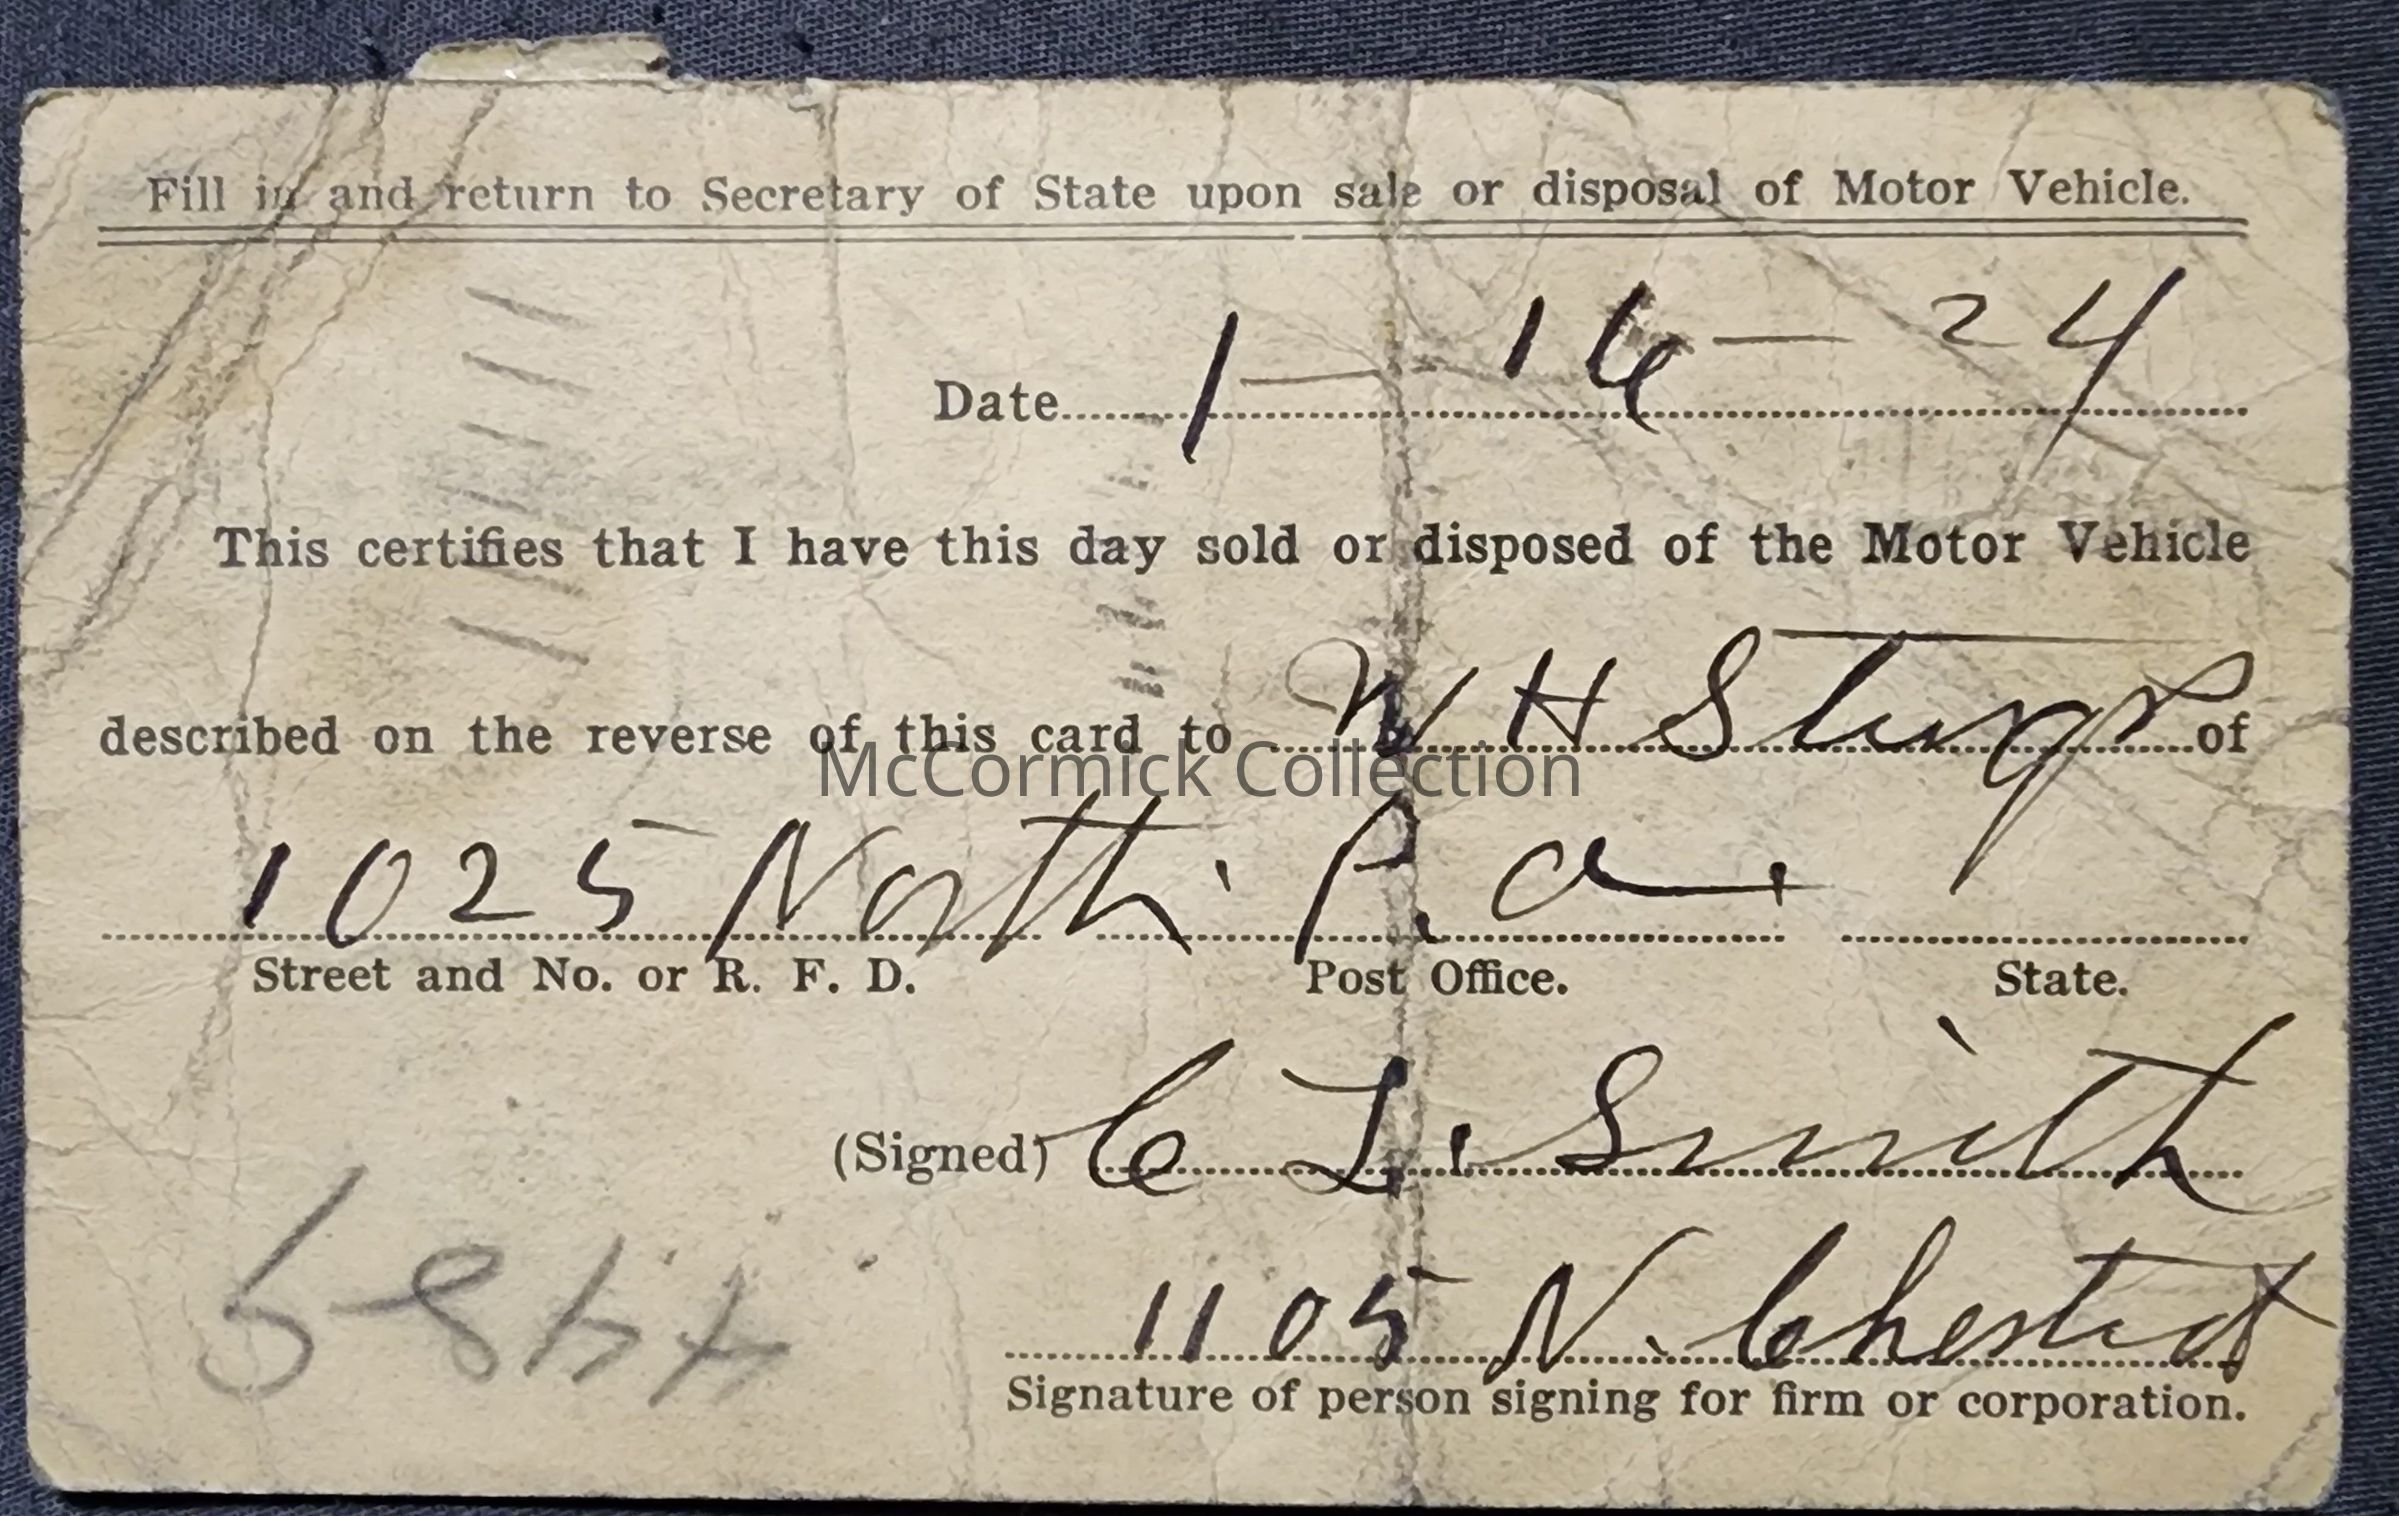 Fill in and return to Secretary of State upon sale or disposal of Motor Vehicle.
Date 1 — 16 — 24
This certifies that I have this day sold or disposed of the Motor Vehicle
described on the reverse of this card to W H of
McCormick Collection
1025 North P. a.
Street and No. or R. F. D. Post Office. State.
(Signed) C L. Smith
1105 N.
Signature of person signing for firm or corporation.